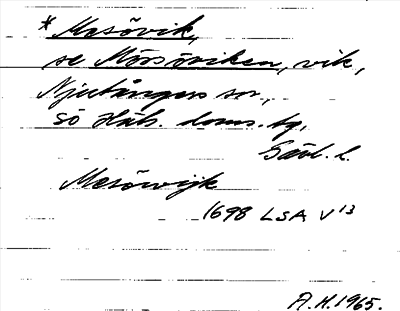 * Masövik,
se Mössöviken, vik,
Njutångers sn.,
sö Häls. doms. tg,
Gävl. l.
Masöwijk
1698 LSA V 13
A.H. 1965.